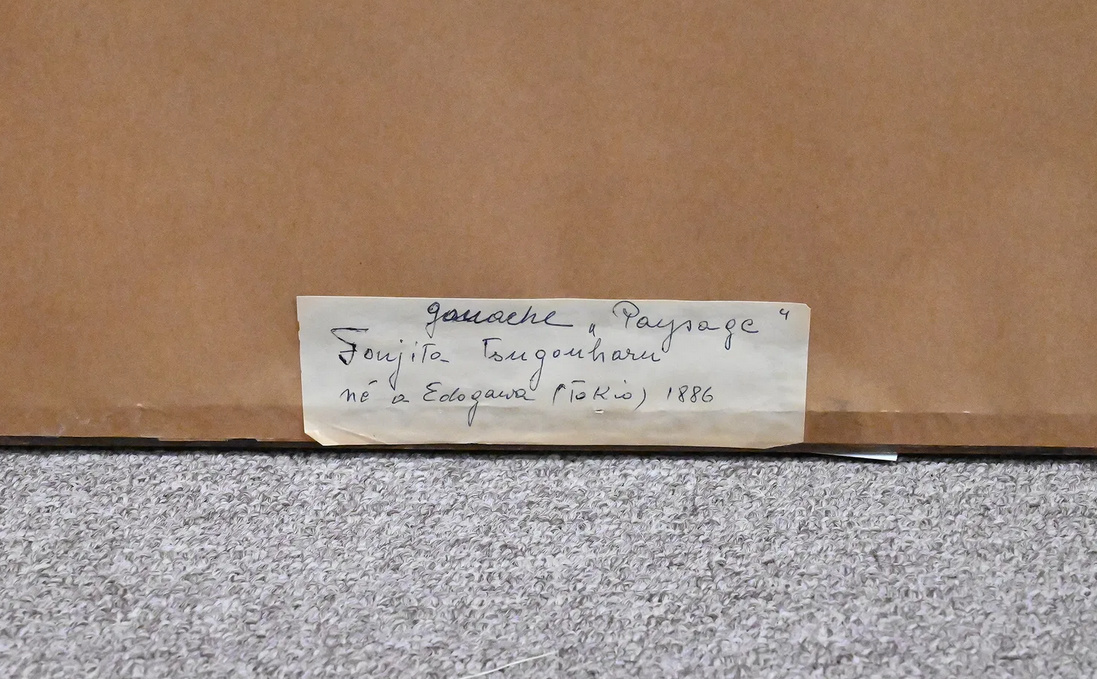 gouache „Paysage"
Foujita Tsugouharu
né a Edogawa (Tokio) 1886